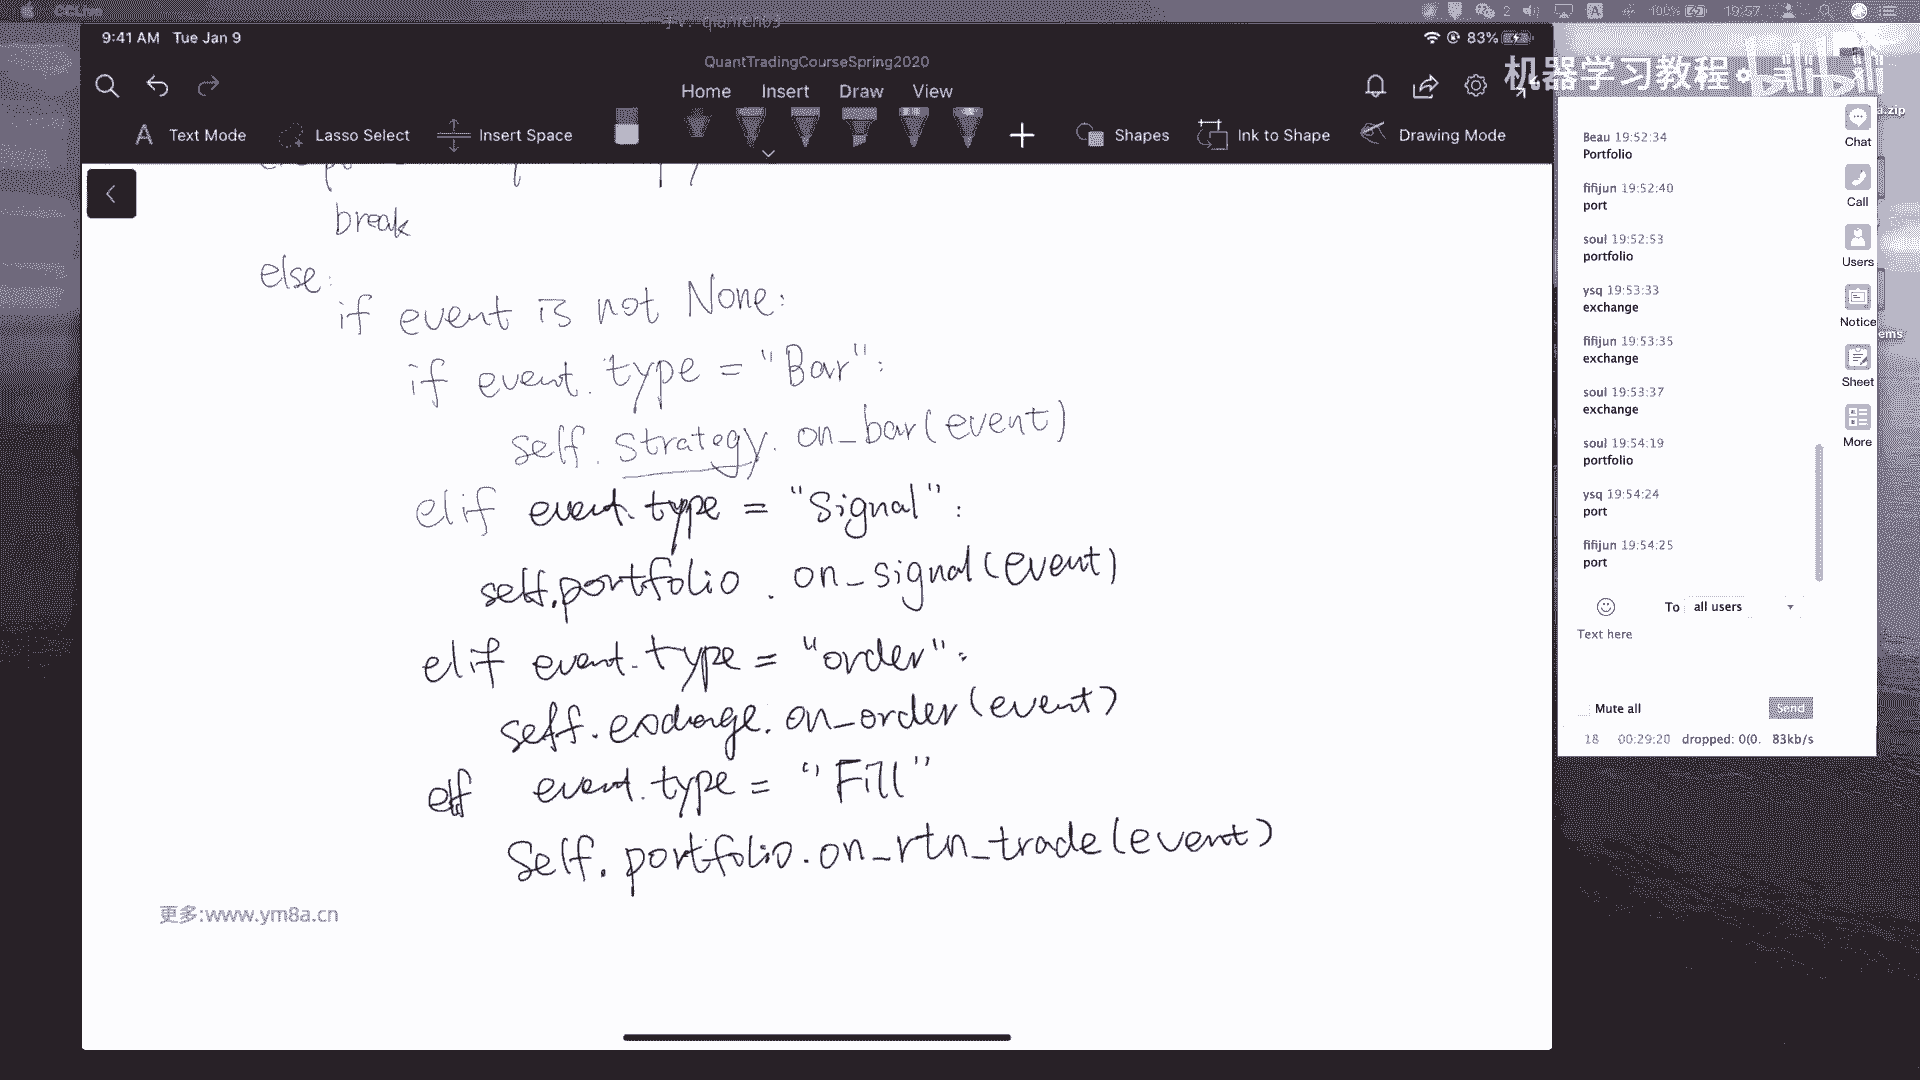 CCLive
100%
19:57
9:41 AM Tue Jan 9
83%
QuantTradingCourseSpring2020
Home Insert Draw View
Text Mode
Lasso Select
Insert Space
Shapes
Ink to Shape
Drawing Mode
机器学习教程
bilibili
a.zip
break
else:
if event is not None:
if event.type = "Bar":
self.strategy.on_bar(event)
elif event.type = "Signal":
self.portfolio.on_signal(event)
elif event.type = "order":
self.exchange.on_order(event)
elif event.type = "Fill"
Self.portfolio.on_rtn_trade(event)
更多:www.ym8a.cn
Beau 19:52:34
Portfolio
fifijun 19:52:40
port
soul 19:52:53
portfolio
ysq 19:53:33
exchange
fifijun 19:53:35
exchange
soul 19:53:37
exchange
soul 19:54:19
portfolio
ysq 19:54:24
port
fifijun 19:54:25
port
To all users
Text here
Mute all
Send
18 00:29:20 dropped: 0(0. 83kb/s
Chat
Call
Users
Notice
Sheet
More
ems